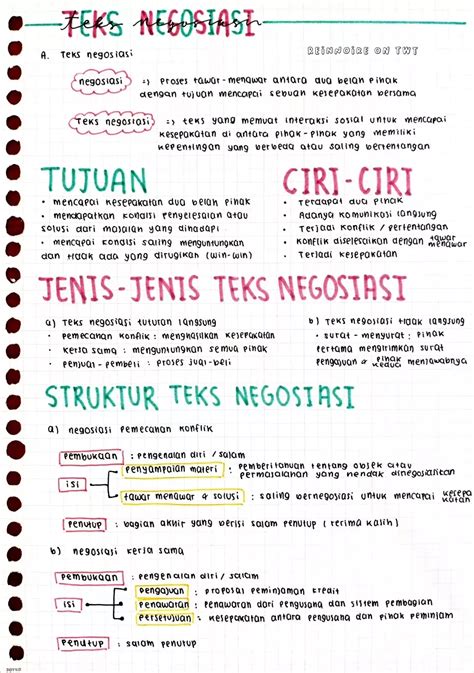 TEKS NEGOSIASI
teks negosiasi
REINNOIRE ON TWT
A. Teks negosiasi
negosiasi => proses tawar-menawar antara dua belah pihak
dengan tujuan mencapai sebuah kesepakatan bersama
Teks negosiasi => teks yang memuat interaksi sosial untuk mencapai
kesepakatan di antara pihak-pihak yang memiliki
kepentingan yang berbeda atau saling bertentangan
TUJUAN
• mencapai kesepakatan dua belah pihak
• mendapatkan kondisi penyelesaian atau
solusi dari masalah yang dihadapi
• mencapai kondisi saling menguntungkan
dan tidak ada yang dirugikan (win-win)
CIRI-CIRI
• Terdapat dua pihak
• Adanya komunikasi langsung
• Terjadi konflik / pertentangan
• Konflik diselesaikan dengan tawar menawar
• Terjadi kesepakatan
JENIS-JENIS TEKS NEGOSIASI
a) Teks negosiasi tuturan langsung
• pemecahan konflik : menghasilkan kesepakatan
• kerja sama : menguntungkan semua pihak
• penjual-pembeli : proses jual-beli
b) Teks negosiasi tidak langsung
• surat-menyurat : pihak
pertama mengirimkan surat
pengajuan & pihak kedua menjawabnya
STRUKTUR TEKS NEGOSIASI
a) negosiasi pemecahan konflik
pembukaan : pengenalan diri / salam
isi
penyampaian materi : pemberitahuan tentang objek atau
permasalahan yang hendak dinegosiasikan
tawar menawar & solusi : saling bernegosiasi untuk mencapai kesepakatan
penutup : bagian akhir yang berisi salam penutup (terima kasih)
b) negosiasi kerja sama
pembukaan : pengenalan diri / salam
isi
pengajuan : proposal peminjaman kredit
penawaran : penawaran dari pengusaha dan sistem pembagian
persetujuan : kesepakatan antara pengusaha dan pihak peminjam
penutup : salam penutup